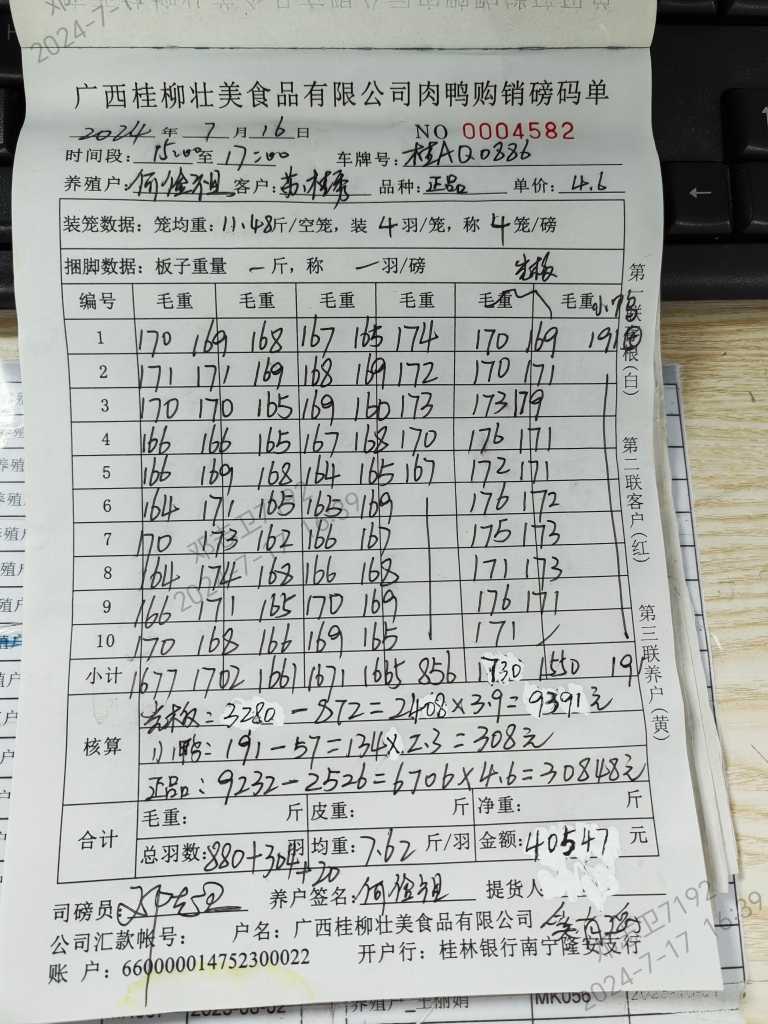 广西桂柳壮美食品有限公司肉鸭购销磅码单
2024年7月16日 NO 0004582
时间段：15:00至17:00 车牌号：桂AQ0886
养殖户： 客户： 品种：正品 单价：4.6
装笼数据：笼均重：11.48斤/空笼，装4羽/笼，称4笼/磅
捆脚数据：板子重量 一 斤，称 一 羽/磅
编号 毛重 毛重 毛重 毛重 毛重 毛重
1 170 169 168 167 165 174 170 169 191
2 171 171 169 168 169 172 170 171
3 170 170 165 169 160 173 173 179
4 166 166 165 167 168 170 176 171
5 166 169 168 164 165 167 172 171
6 164 171 165 165 169 176 172
7 170 173 162 166 167 175 173
8 164 174 168 166 168 171 173
9 166 171 165 170 169 176 171
10 170 168 166 169 165 171
小计 1677 1702 1661 1671 1665 856 1730 1550 191
核算
3280－872＝2408×3.9＝9391元
小鸭：191－57＝134×2.3＝308元
正品：9232－2526＝6706×4.6＝30848元
合计
毛重： 斤 皮重： 斤 净重： 斤
总羽数：880+304+20羽 均重：7.62斤/羽 金额：40547元
司磅员： 养户签名： 提货人
公司汇款帐号： 户名：广西桂柳壮美食品有限公司
账户：660000014752300022 开户行：桂林银行南宁隆安支行
第一联存根（白）
第二联客户（红）
第三联养户（黄）
2024-7-17 16:39